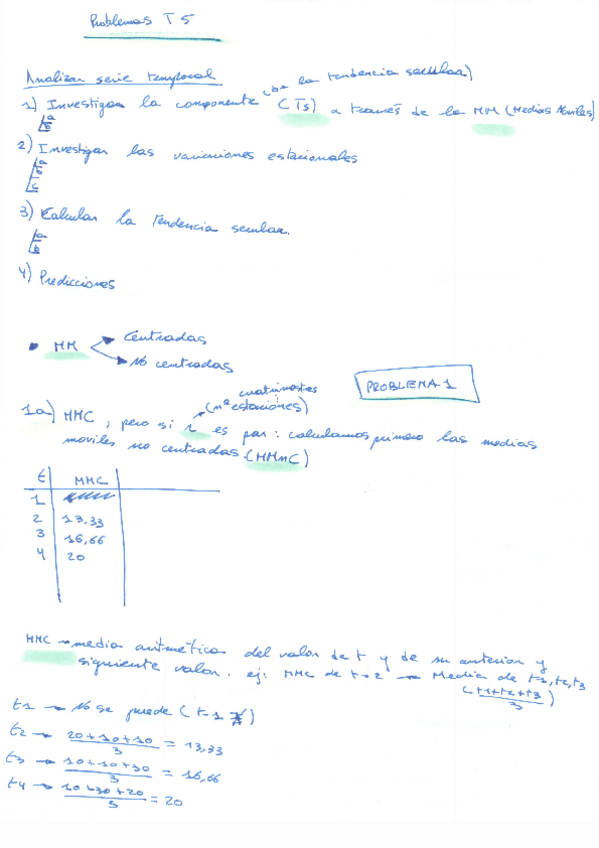 Problemas T5
Analizar serie temporal
(de la tendencia secular)
1) Investigar la componente (Ts) a través de la MM (Medias Moviles)
a
b
2) Investigar las variaciones estacionales
a
b
c
3) Calcular la tendencia secular.
a
b
4) Predicciones
• MM → Centradas
→ No centradas
PROBLEMA 1
cuatrimestres
(nº estaciones)
1a) MMC, pero si r es par: calculamos primero las medias
moviles no centradas. (MMnC)
t MMC
1
2 13,33
3 16,66
4 20
MMC → media aritmética del valor de t y de su anterior y
siguiente valor. ej: MMC de t=2 → Media de t1, t2, t3
(t1+t2+t3 / 3)
t1 → No se puede (t-1 ∄)
t2 → 20+10+10 / 3 = 13,33
t3 → 10+10+30 / 3 = 16,66
t4 → 10+30+20 / 3 = 20